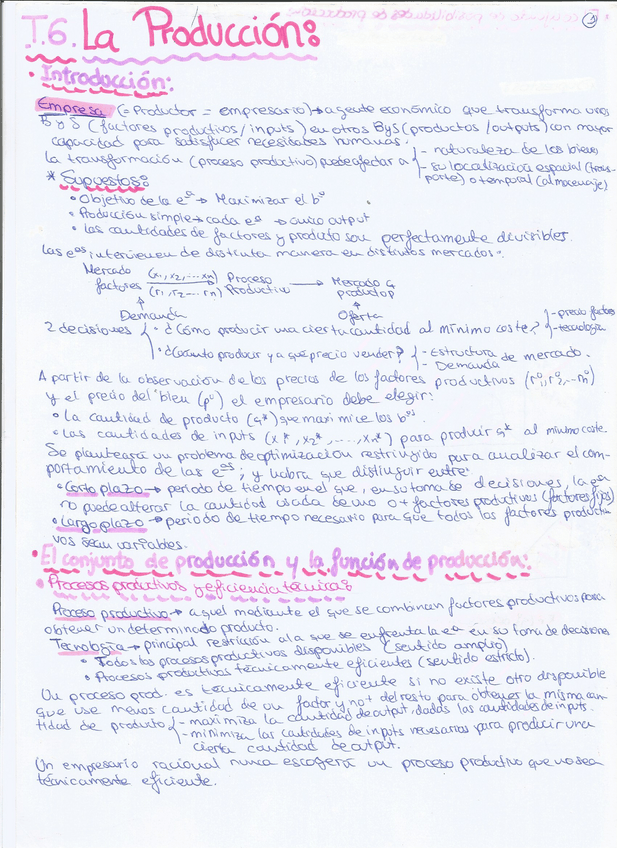 ①
T.6. La Producción:
• Introducción:
Empresa (= Productor = empresario) → agente económico que transforma unos
B y S (factores productivos / inputs) en otros ByS (productos / outputs) con mayor
capacidad para satisfacer necesidades humanas.
La transformación (proceso productivo) puede afectar a { - naturaleza de los bienes
- su localización espacial (transporte) o temporal (almacenaje)
* Supuestos:
• Objetivo de la eª → Maximizar el bº
• Producción simple → cada eª → único output
• Las cantidades de factores y producto son perfectamente divisibles.
Las eªs intervienen de distinta manera en distintos mercados:
Mercado factores (x1, x2, ... xn) (r1, r2 ... rn) Proceso Productivo → Mercado q producto p
↑ Demanda ↑ Oferta
2 decisiones { • ¿Cómo producir una cierta cantidad al mínimo coste? { - precio factores - tecnología
• ¿Cuánto producir y a que precio vender? { - Estructura de mercado. - Demanda
A partir de la observación de los precios de los factores productivos (r1º, r2º, ... rnº)
y el precio del bien (pº) el empresario debe elegir:
• La cantidad de producto (q*) que maximice los bºs.
• Las cantidades de inputs (x*, x2*, ..., xn*) para producir q* al mínimo coste.
Se planteará un problema de optimización restringido para analizar el com-
portamiento de las eªs; y habra que distinguir entre
• Corto plazo → periodo de tiempo en el que, en su toma de decisiones, la eª
no puede alterar la cantidad usada de uno o + factores productivos (factores fijos)
• Largo plazo → periodo de tiempo necesario para que todos los factores producti-
vos sean variables.
• El conjunto de producción y la función de producción:
• Procesos productivos y eficiencia técnica:
Proceso productivo → aquel mediante el que se combinan factores productivos para
obtener un determinado producto.
Tecnología → principal restricción a la que se enfrenta la eª en su toma de decisiones
• Todos los procesos productivos disponibles (sentido amplio)
• Procesos productivos técnicamente eficientes (sentido estricto).
Un proceso prod. es técnicamente eficiente si no existe otro disponible
que use menos cantidad de un factor y no + del resto para obtener la misma can-
tidad de producto { - maximiza la cantidad de output, dadas las cantidades de inputs.
- minimiza las cantidades de inputs necesarias para producir una
cierta cantidad de output.
Un empresario racional nunca escogerá un proceso productivo que no sea
técnicamente eficiente.